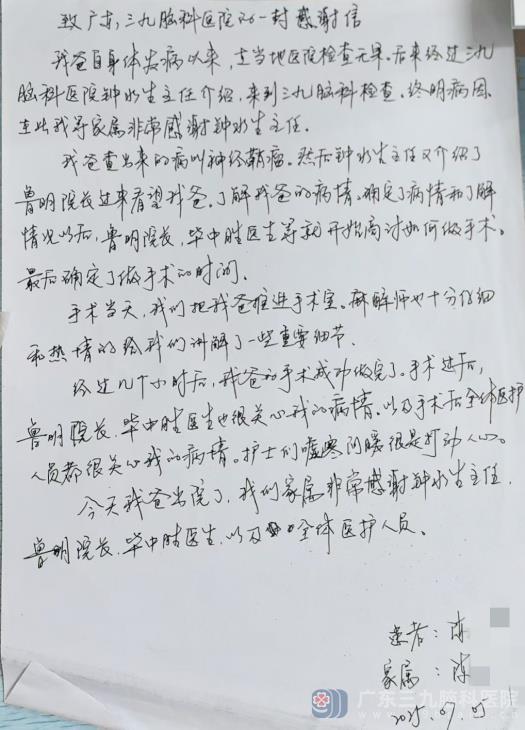 致广东三九脑科医院的一封感谢信
我爸自身体发病以来，去当地医院检查无果。后来经过三九
脑科医院钟水生主任介绍，来到三九脑科检查。终明病因。
在此我等家属非常感谢钟水生主任。
我爸查出来的病叫神经鞘瘤。然后钟水生主任又介绍了
鲁明院长过来看望我爸，了解我爸的病情。确定了病情和了解
情况以后，鲁明院长，毕中胜医生等就开始商讨如何做手术。
最后确定了做手术的时间。
手术当天，我们把我爸推进手术室。麻解师也十分仔细
和热情的给我们讲解了一些重要细节。
经过几个小时后，我爸的手术成功做完了。手术过后，
鲁明院长，毕中胜医生也很关心我的病情。以及手术后全体医护
人员都很关心我的病情。护士们嘘寒问暖很是打动人心。
今天我爸出院了，我们家属非常感谢钟水生主任，
鲁明院长，毕中胜医生，以及全体医护人员。
患者：陈
家属：陈
2025.07.05
广东三九脑科医院